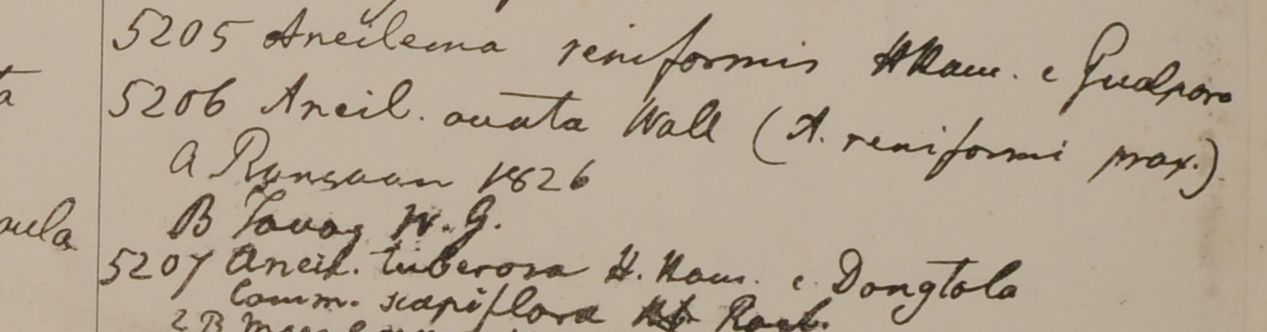 5205 Aneilema reniformis HHam. e Gualpara
5206 Aneil. ovata Wall (A. reniformi prox.)
a Rangoon 1826
B Tavoy W. G.
5207 Aneil. tuberosa H. Ham. e Dongtola
Comm. scapiflora Roxb.
2 B